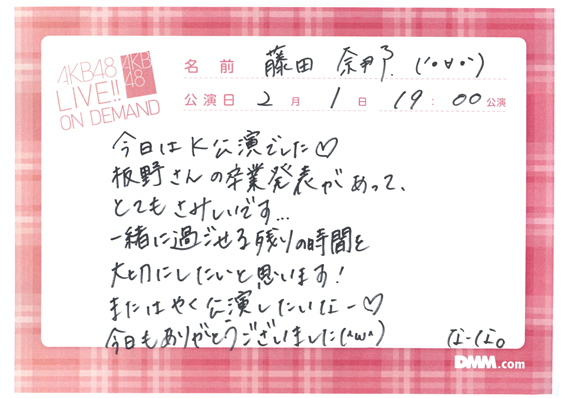 AKB48
LIVE!!
ON DEMAND
AKB
48
名前 藤田 奈那 (・∀・)
公演日 2月 1日 19:00公演
今日はK公演でした♡
板野さんの卒業発表があって、
とてもさみしいです...
一緒に過ごせる残りの時間を
大切にしたいと思います!
またはやく公演したいなー♡
今日もありがとうございました(^ω^)
なーな。
DMM.com